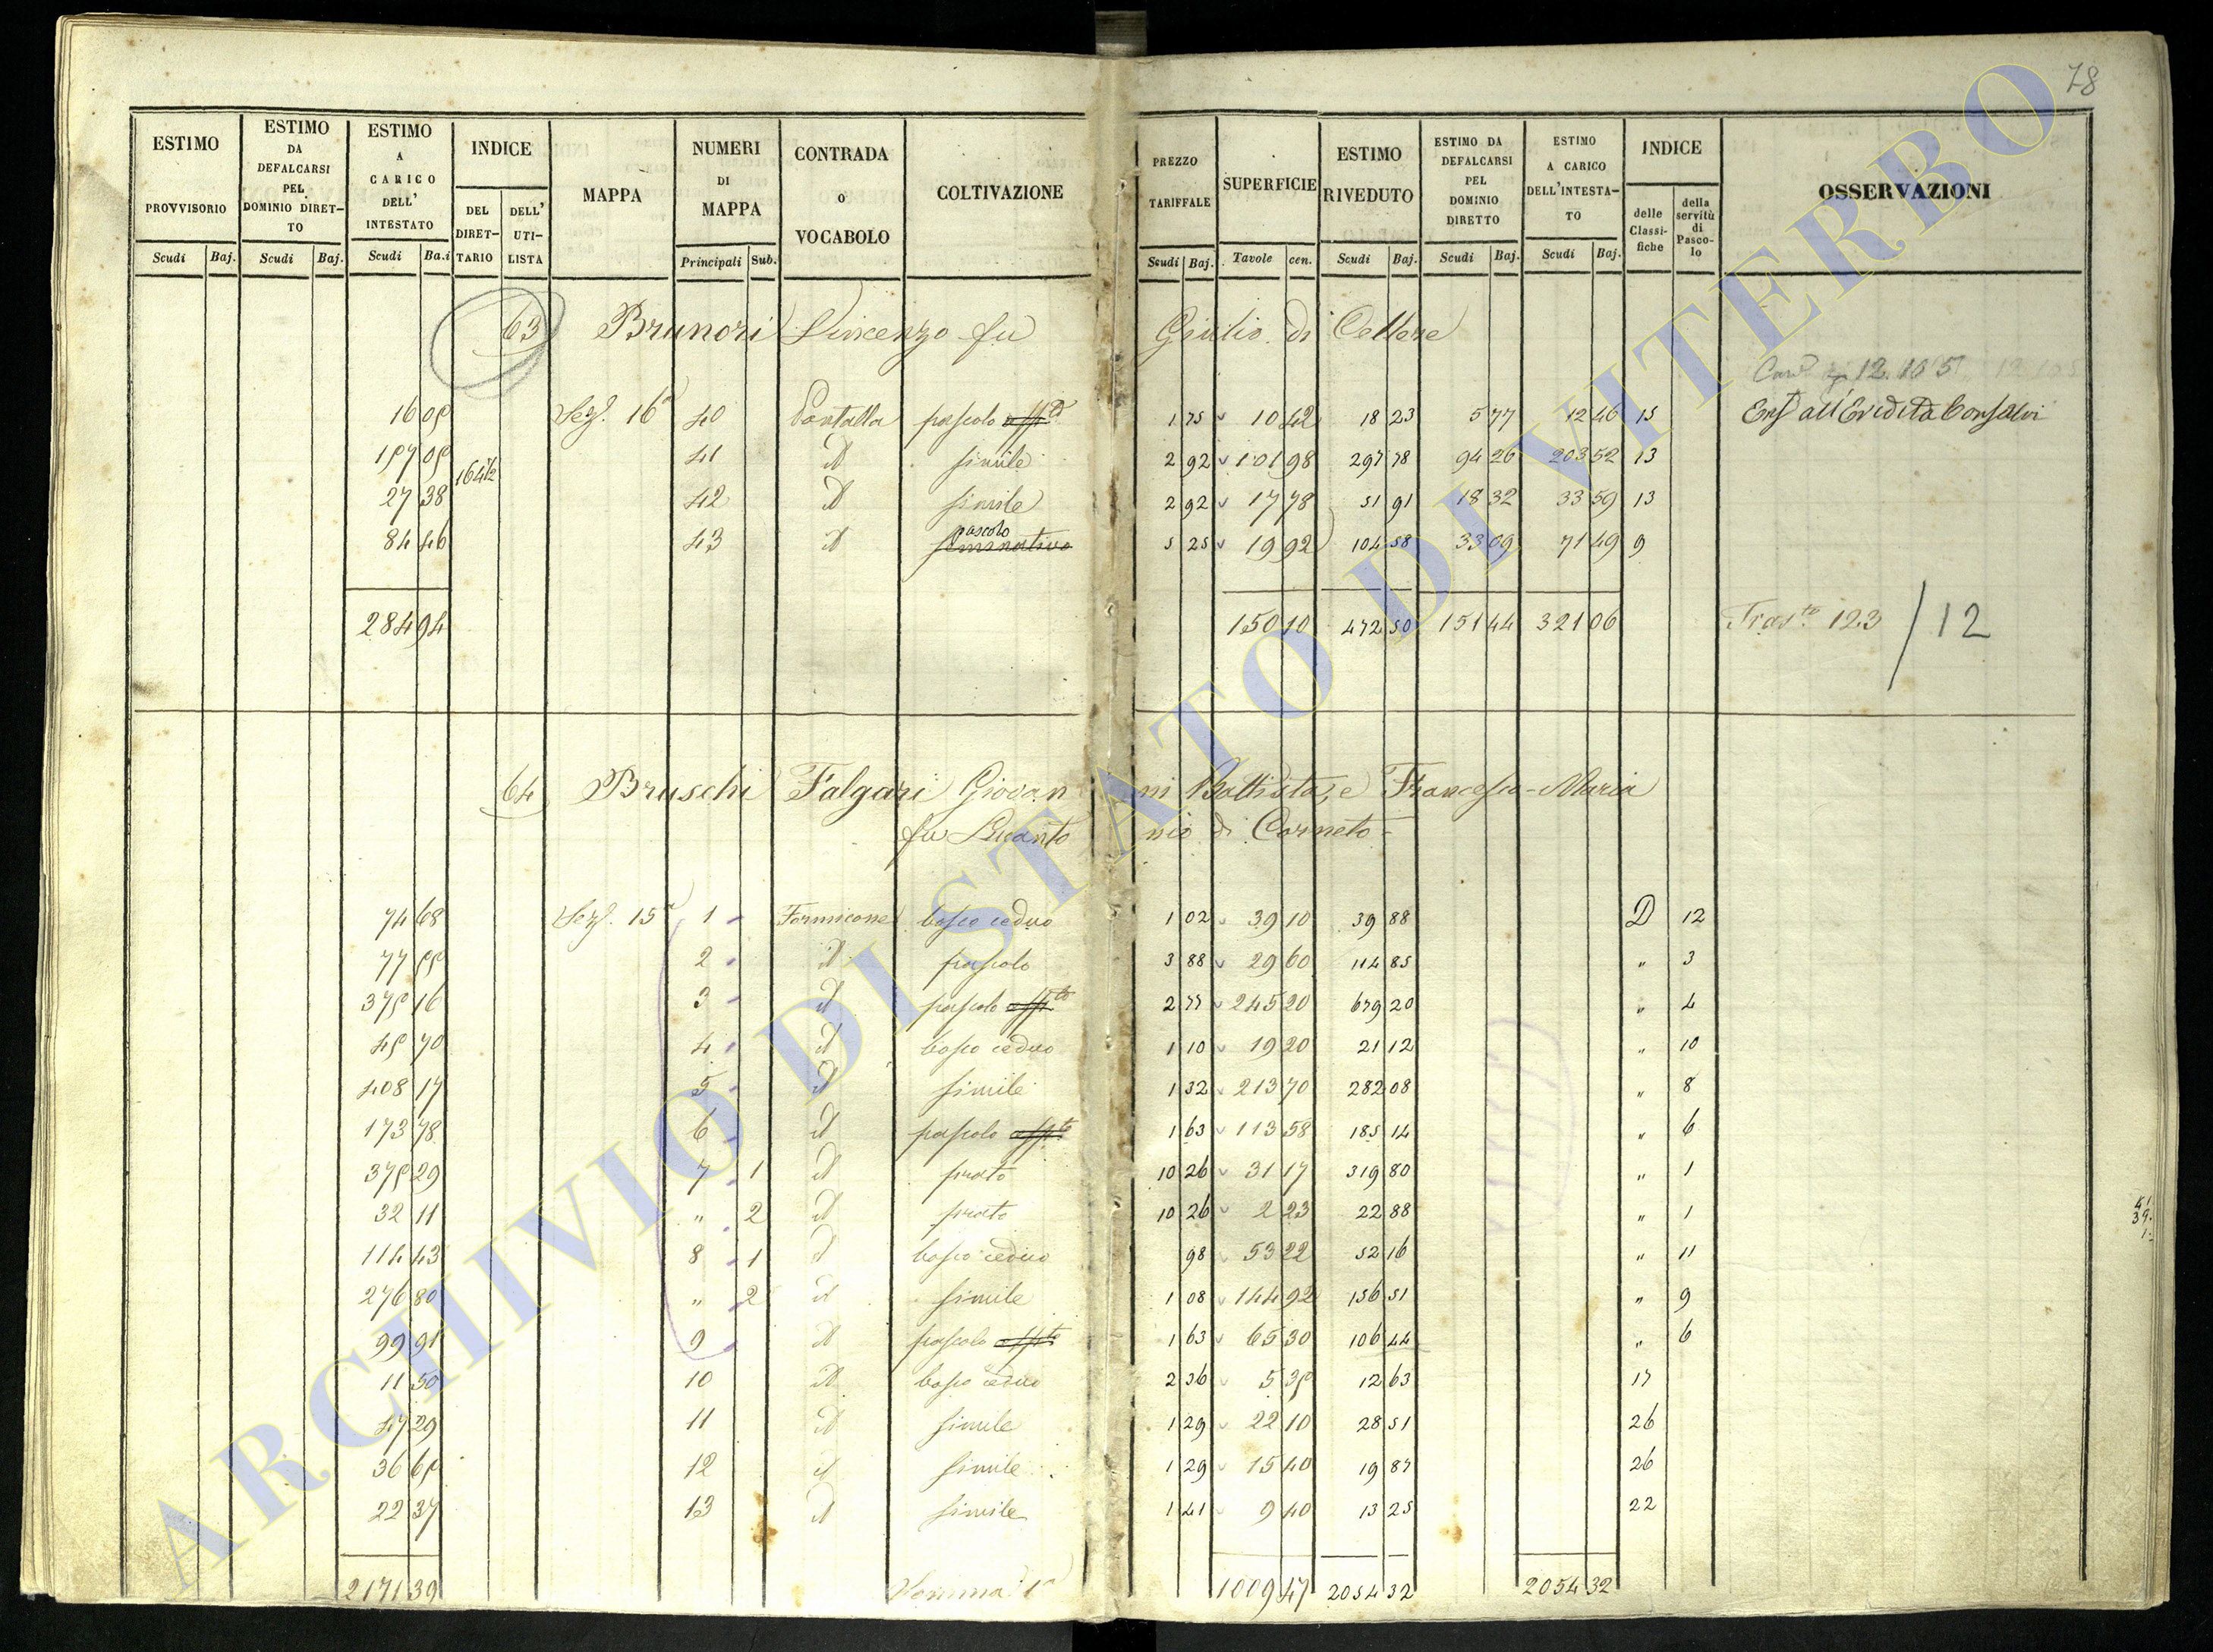 78
ESTIMO PROVVISORIO Scudi Baj.
ESTIMO DA DEFALCARSI PEL DOMINIO DIRETTO Scudi Baj.
ESTIMO A CARICO DELL' INTESTATO Scudi Ba.i
INDICE DEL DIRETTARIO DELL' UTILISTA
MAPPA
NUMERI DI MAPPA Principali Sub.
CONTRADA O VOCABOLO
COLTIVAZIONE
PREZZO TARIFFALE Scudi Baj.
SUPERFICIE Tavole cen.
ESTIMO RIVEDUTO Scudi Baj.
ESTIMO DA DEFALCARSI PEL DOMINIO DIRETTO Scudi Baj.
ESTIMO A CARICO DELL'INTESTATO Scudi Baj.
INDICE delle Classifiche della servitù di Pascolo
OSSERVAZIONI
63 Brunori Vincenzo fu Giulio di Cellere
12.165
16 05 Sez. 16a 40 pascolo 1 75 10 42 18 23 5 77 12 46 15 Enf all'Eredità Consalvi
157 05 41 d simile 2 92 101 98 297 78 94 26 203 52 13
164 1/2
27 38 42 d simile 2 92 17 78 51 91 18 32 33 59 13
84 46 43 d pascolo seminativo 5 25 19 92 104 58 33 09 71 49 9
284 94 150 10 472 50 151 44 321 06 Tras.to 123 / 12
64 Bruschi Falgari Giovanni Battista, e Francesco-Maria
fu Lucantonio di Corneto
74 68 Sez. 15a 1 Formicone bosco ceduo 1 02 39 10 39 88 D 12
77 55 2 d pascolo 3 88 29 60 114 85 " 3
375 16 3 d pascolo 2 77 245 20 679 20 " 4
45 70 4 d bosco ceduo 1 10 19 20 21 12 " 10
408 17 5 d simile 1 32 213 70 282 08 " 8
173 78 6 d pascolo 1 63 113 58 185 14 " 6
375 29 7 1 d prato 10 26 31 17 319 80 " 1
32 11 " 2 d prato 10 26 2 23 22 88 " 1
114 43 8 1 d bosco ceduo 98 53 22 52 16 " 11
276 80 " 2 d simile 1 08 144 92 156 51 " 9
99 91 9 d pascolo 1 63 65 30 106 44 " 6
11 50 10 d bosco ceduo 2 36 5 35 12 63 17
47 29 11 d simile 1 29 22 10 28 51 26
36 65 12 d simile 1 29 15 40 19 87 26
22 37 13 d simile 1 41 9 40 13 25 22
2171 39 Somma 1a 1009 47 2054 32 2054 32
ARCHIVIO DI STATO DI VITERBO